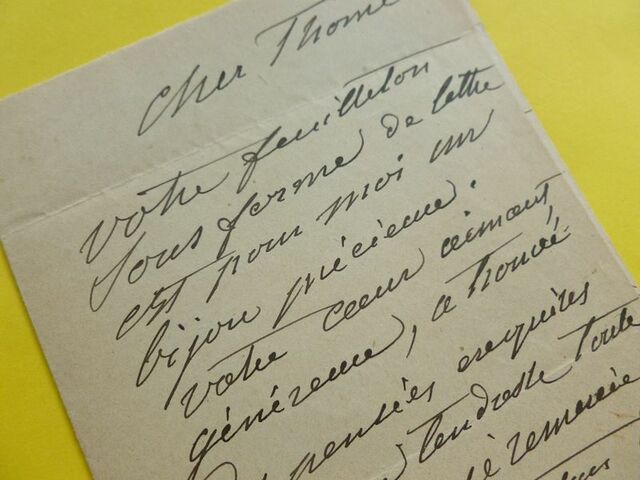 Cher Thomé
votre feuilleton
sous forme de lettre
est pour moi un
bijou précieux.
votre cœur aimant,
généreux, a trouvé
pensées exquises
tendresse toute
remercie